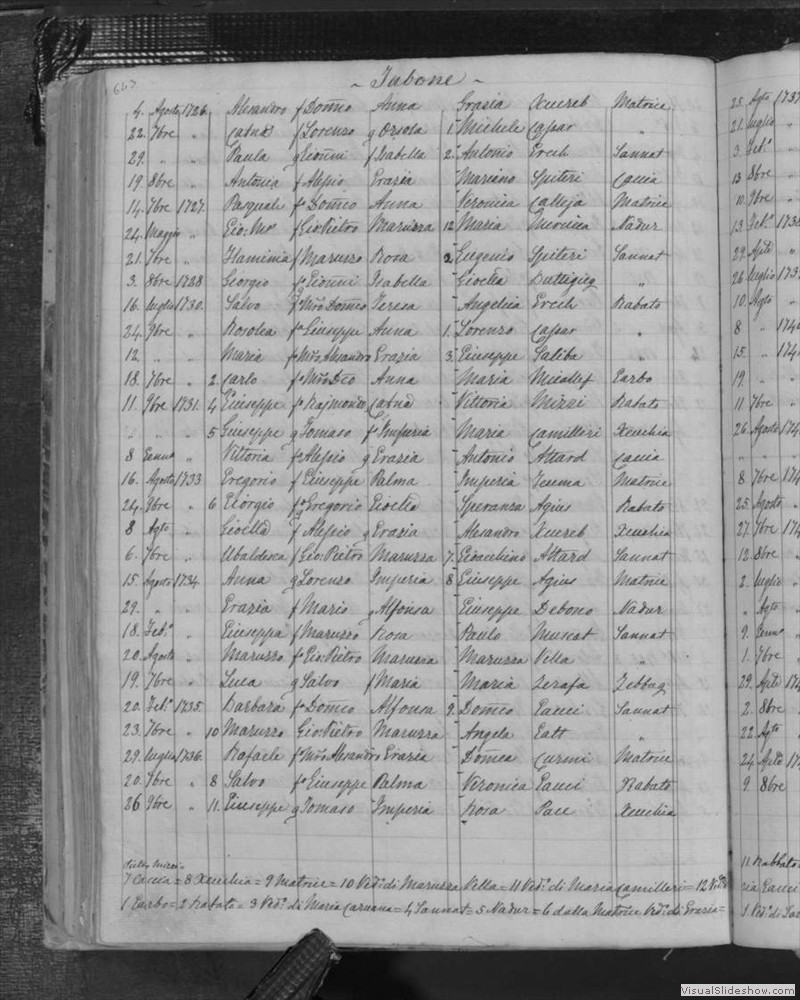 663
~ Tabone ~
4. Agosto 1726. Alesandro f Domco Anna Grasia Xuereb Matrice
22. 7bre " Catna f Lorenzo g Orsola 1. Michele Caspar "
29. " " Paula g Gionni f Isabella 2. Antonio Ercih Sannat
19. 8bre " Antonia f Alesio Erazia Mariano Spiteri Caccia
14. 7bre 1727. Pasquale fo Domco Anna Veronica Calleja Matrice
24. Maggio " Gio: Ma f Gio Pietro Maruzza 12 Maria Nadur
21. 7bre " Flaminia f Maruzzo Rosa 2 Eugenio Spiteri Sannat
3. 8bre 1728 Georgio fo Gionni Isabella Gioella Buttigieg "
16. luglio 1730. Salvo f Mro Domco Teresa Angelica Ercih Rabato
24. 9bre " Rosolea fo Giuseppe Anna 1. Lorenzo Caspar "
12. " " Maria fo Mro Alesandro Erazia 3. Giuseppe Saliba "
18. 7bre " 2. Carlo fo Mro Dco Anna Maria Micallef Earbo
11. 9bre 1731. 4 Giuseppe fo Rajmondo Catna Vittoria Mizzi Rabato
" " " 5 Giuseppe g Tomaso fo Imperia Maria Camilleri Xeuchia
8 Genno " Vittoria fo Alesio g Erazia Antonio Attard Caccia
16. Agosto 1733 Gregorio f Giuseppe Palma Imperia Matrice
24. 9bre " 6 Giorgio fo Gregorio Gioella Speranza Agius Rabato
8 Agto " Gioella f Alesio g Erazia Alesandro Xuereb Xeuchia
6. 7bre " Ubaldesca f Gio: Pietro Maruzza 7. Gioachino Attard Sannat
15. Agosto 1734. Anna g Lorenzo Imperia 8 Giuseppe Agius Matrice
29. " " Erazia f Mario g Alfonsa Giuseppe Debono Nadur
18. Feb.o " Giuseppa f Maruzzo Rosa Paulo Muscat Sannat
20. Agosto " Maruzzo fo Gio Pietro Maruzza Maruzza Vella "
19. 7bre " Luca g Salvo f Maria Maria Zerafa Zebbug
20. Feb.o 1735. Barbara fo Domco Alfonsa 9. Domco Pauci Sannat
23. 7bre " 10 Maruzzo Gio Pietro Maruzza Angela Eatt "
29. luglio 1736. Rafaele fo Mro Alesandro Erazia Domca Curmi Matrice
20. 9bre " 8 Salvo fo Giuseppe Palma Veronica Pauci Rabato
26 9bre " 11. Giuseppe g Tomaso Imperia Rosa Pace Xeuchia
7 Caccia = 8 Xeuchia = 9 Matrice = 10 Ved.o di Maruzza Vella = 11 Ved.o di Maria Camilleri = 12
1 Earbo = 2 Rabato = 3 Ved.o di Maria Caruana = 4 Sannat = 5 Nadur = 6 dalla Matrice Ved.o di Erazia =
25. Agto 1737
21. luglio
3. Feb.o
13 8bre
10. 9bre
13 Feb.o
29. Aple
26 luglio
10. Agto
8 " 174
15. " 174
19. "
11. 7bre
26. Agosto 174
" "
8 7bre 174
25. Agosto
27. 7bre 174
12. 8bre
2. luglio
" Agto
9. Genno
1. 7bre
29. Aple 174
2. 8bre
22. Agto
24. Aple
9. 8bre
11 Rabbato
ria Pauci
1 Ved.o di
VisualSlideshow.com